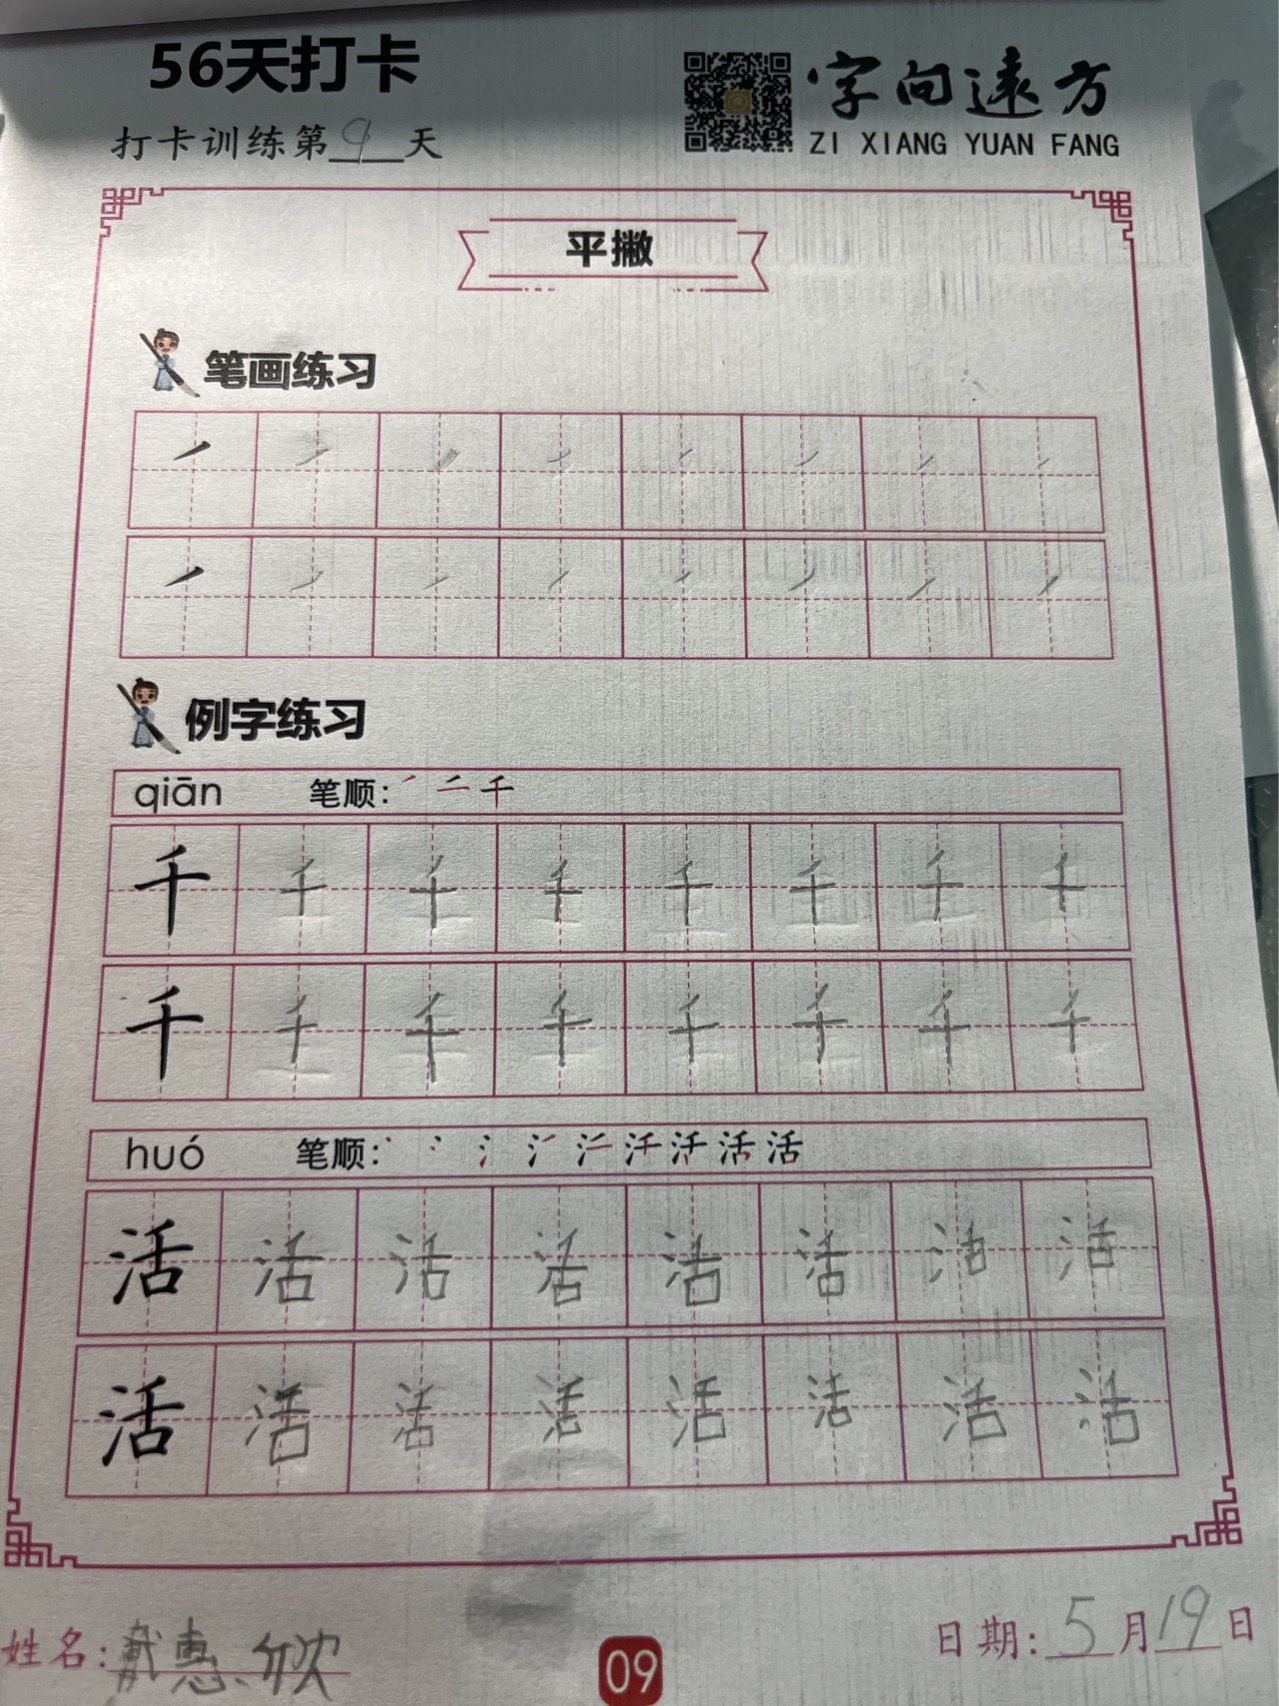 56天打卡
字向遠方
打卡训练第9天
ZI XIANG YUAN FANG
平撇
笔画练习
例字练习
qiān 笔顺: 千
千 千 千 千 千 千 千 千
千 千 千 千 千 千 千 千
huó 笔顺: 活
活 活 活 活 活 活 活 活
活 活 活 活 活 活 活 活
姓名: 戴惠欣
日期: 5月19日
09